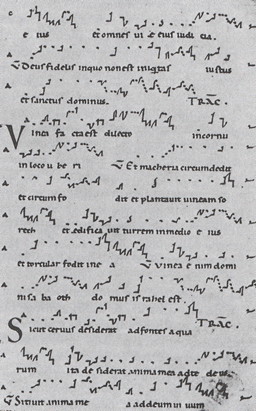 e ius et omnes vi e eius iudi cia.
V Deus fidelis in quo non est iniquitas iustus
et sanctus dominus. TRAC.
Vinea fa cta est dilecto in cornu
in loco u be ri V Et maceria circumdedit
et circum fo dit et plantavit vineam so
rech et edifica vit turrem in medio e ius
et torcular fodit in e a V Vinea e nim domi
ni sa ba oth do mus israhel est. TRAC.
Sicut cervus desiderat ad fontes aqua
rum ita de siderat anima mea ad te deus
V Sitivit anima me a ad deum vivum